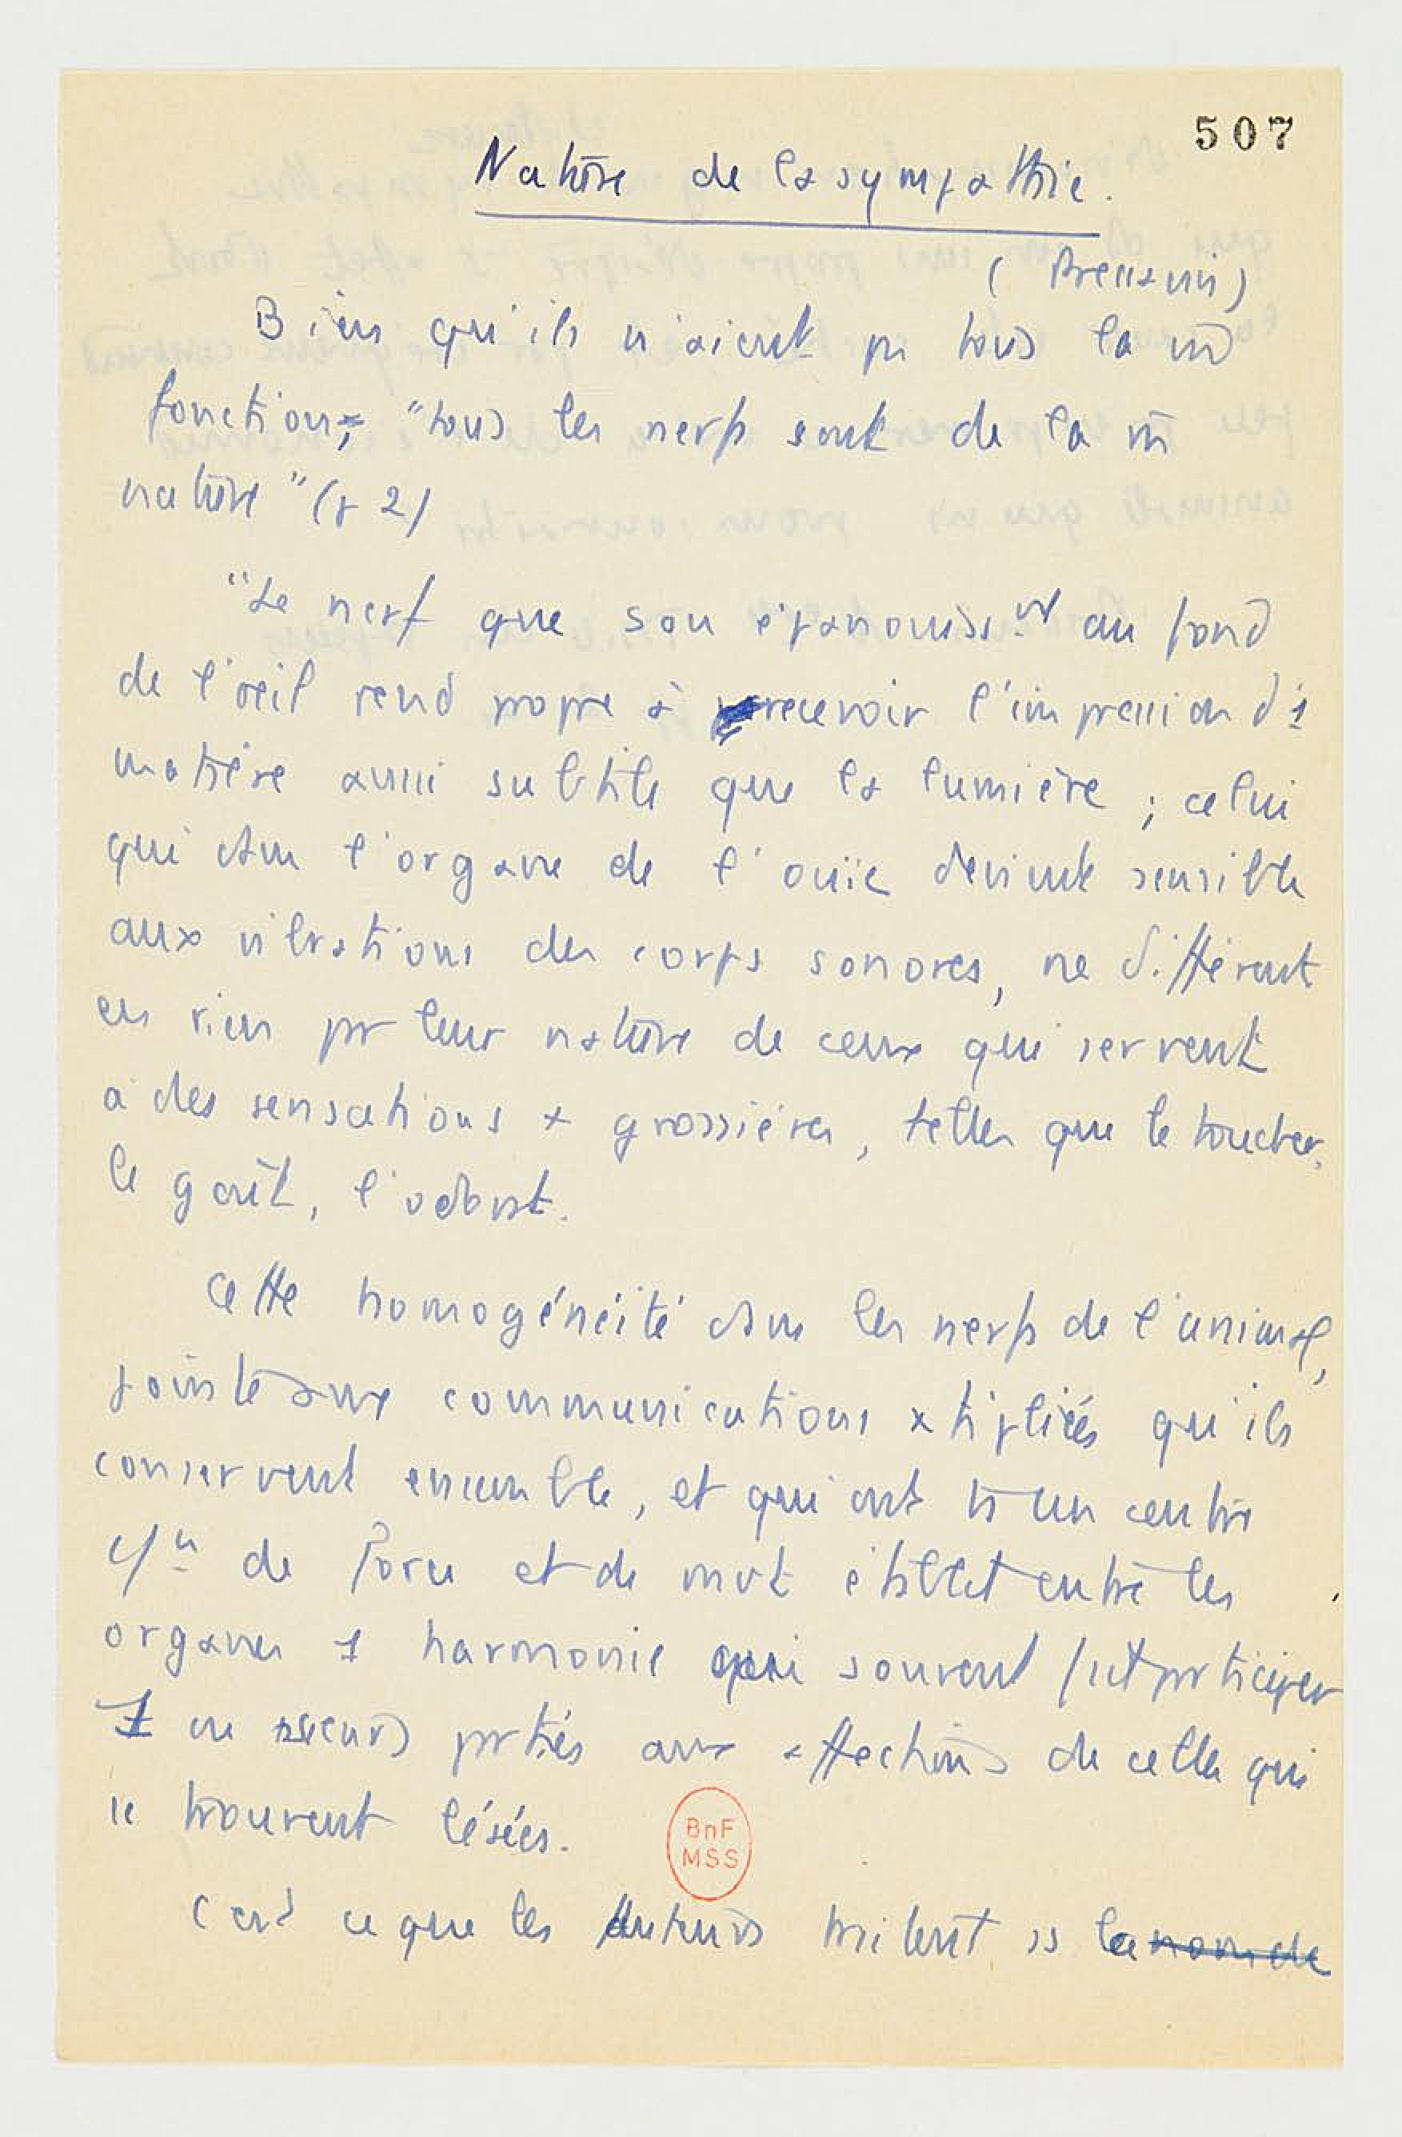 507
Nature de la sympathie.
(Bressanin)
Bien qu'ils n'aient pr tous la m̄
fonction, "tous les nerfs sont de la m̄
nature" (p 2)
"Le nerf que son épanouisst au fond
de l'oeil rend propre à recevoir l'impression d'1
matière aussi subtile que la lumière ; celui
qui dans l'organe de l'ouïe devient sensible
aux vibrations des corps sonores, ne diffèrent
en rien pr leur nature de ceux qui servent
à des sensations + grossières, telles que le toucher,
le goût, l'odorat.
Cette homogénéité dans les nerfs de l'animal,
jointe aux communications xtipliées qu'ils
conservent ensemble, et qui ont ts un centre
de force et de mvt établit entre les
organes 1 harmonie qui souvent fait prticiper
1 ou sieurs prties aux affections de celles qui
se trouvent lésées.
C'est ce que les auteurs traitent ss le nom de
BnF
MSS